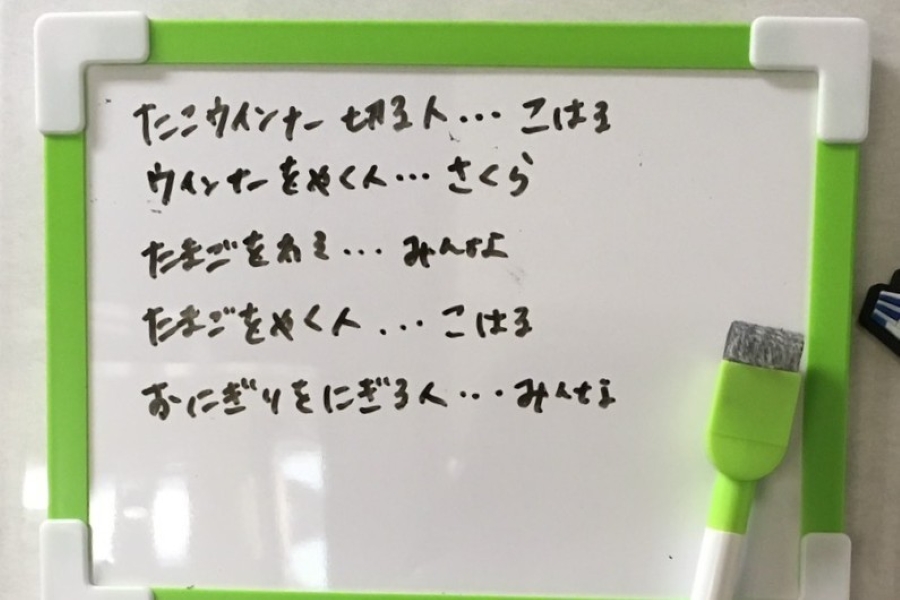 たこウインナー 切る人…こはる
ウインナーをやく人…さくら
たまごをわる…みんな
たまごをやく人…こはる
おにぎりをにぎる人…みんな